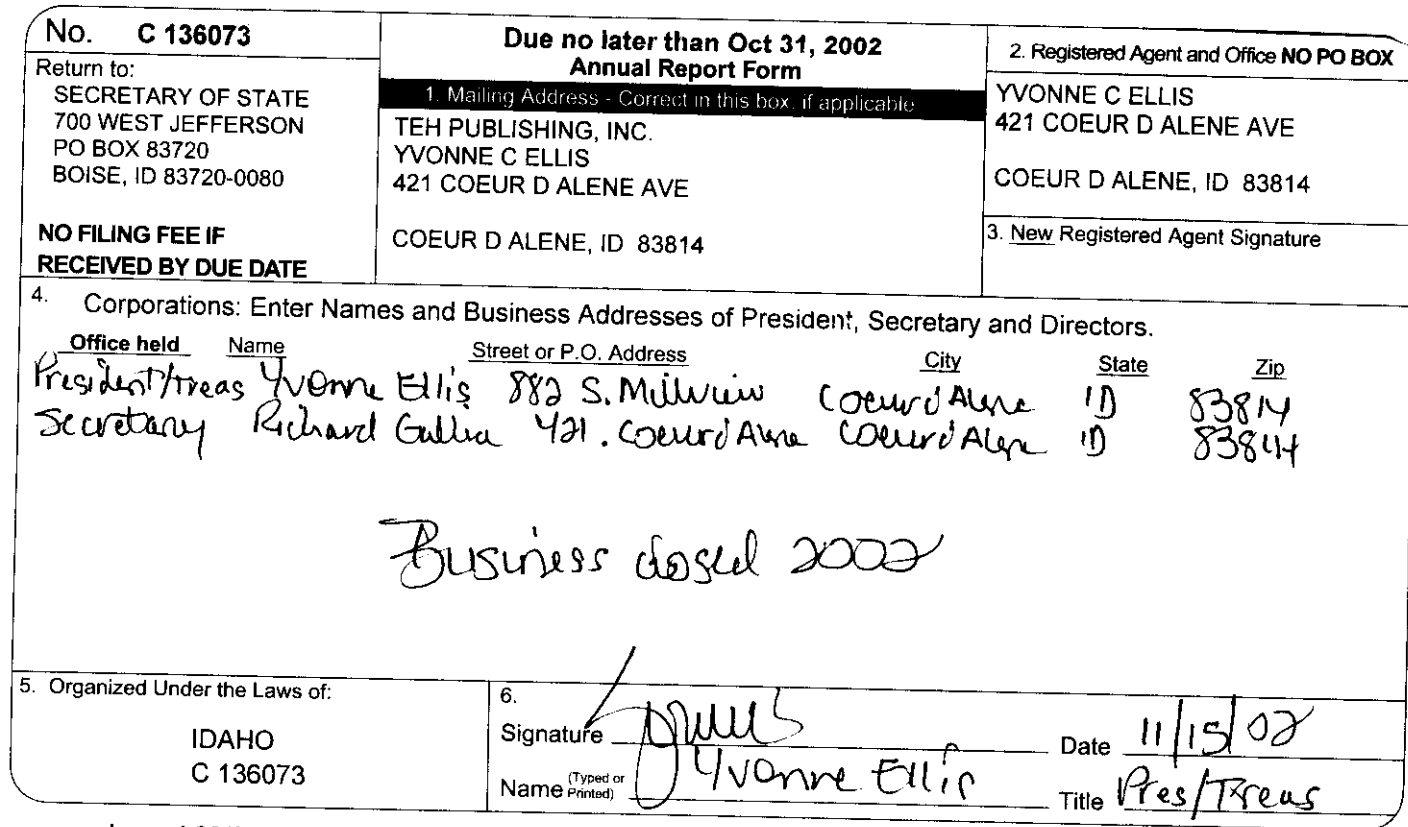 No. C 136073
Return to:
SECRETARY OF STATE
700 WEST JEFFERSON
PO BOX 83720
BOISE, ID 83720-0080
NO FILING FEE IF
RECEIVED BY DUE DATE
Due no later than Oct 31, 2002
Annual Report Form
1. Mailing Address - Correct in this box, if applicable
TEH PUBLISHING, INC.
YVONNE C ELLIS
421 COEUR D ALENE AVE
COEUR D ALENE, ID 83814
2. Registered Agent and Office NO PO BOX
YVONNE C ELLIS
421 COEUR D ALENE AVE
COEUR D ALENE, ID 83814
3. New Registered Agent Signature
4. Corporations: Enter Names and Business Addresses of President, Secretary and Directors.
Office held Name Street or P.O. Address City State Zip
President/treas Yvonne Ellis 882 S. Coeur d'Alene ID 83814
Secretary Richard 421. Coeur d'Alene Coeur d'Alene ID 83814
Business closed 2002
5. Organized Under the Laws of:
IDAHO
C 136073
6.
Signature Date 11/15/02
Name (Typed or Printed) Yvonne Ellis Title Pres/Treas